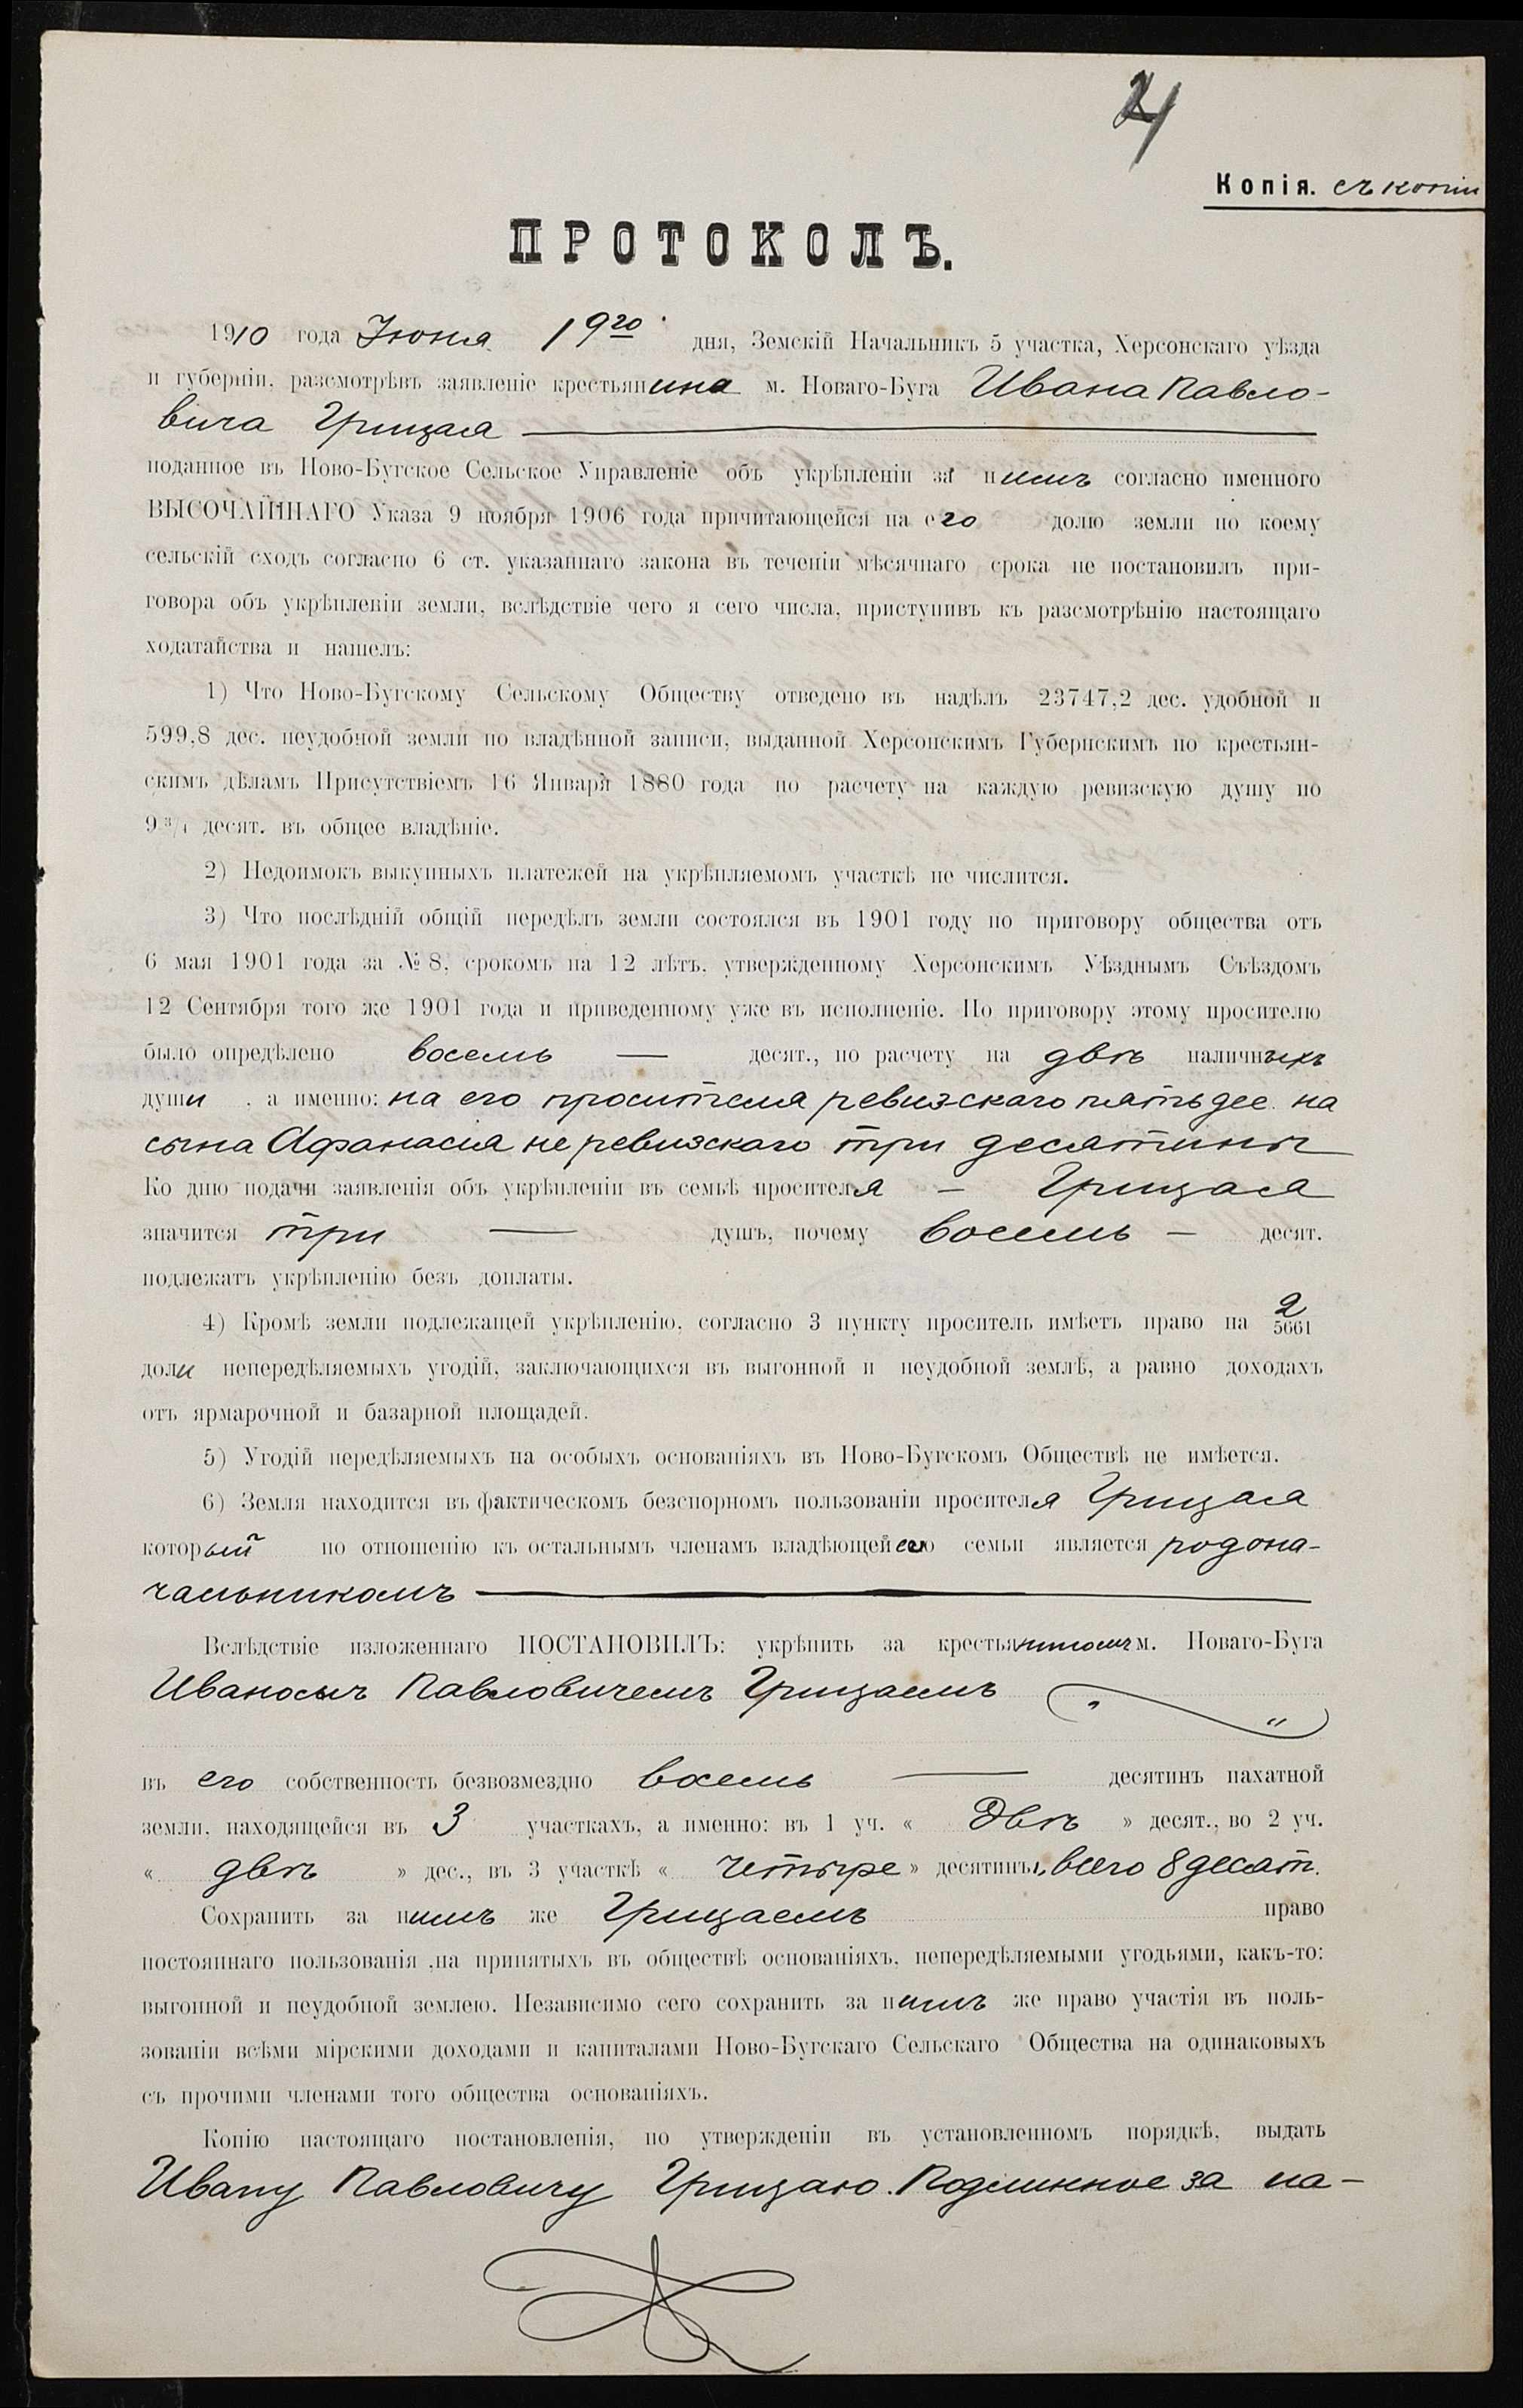 4
Копія. съ копіи
ПРОТОКОЛЪ.
1910 года Іюня 19го дня, Земскій Начальникъ 5 участка, Херсонскаго уѣзда
и губерніи, разсмотрѣвъ заявленіе крестьянина м. Новаго-Буга Ивана Павло-
вича Грицая
поданное въ Ново-Бугское Сельское Управленіе объ укрѣпленіи за нимъ согласно именного
ВЫСОЧАЙШАГО Указа 9 ноября 1906 года причитающейся на его долю земли по коему
сельскій сходъ согласно 6 ст. указаннаго закона въ теченіи мѣсячнаго срока не постановилъ при-
говора объ укрѣпленіи земли, вслѣдствіе чего я сего числа, приступивъ къ разсмотрѣнію настоящаго
ходатайства и нашелъ:
1) Что Ново-Бугскому Сельскому Обществу отведено въ надѣлъ 23747,2 дес. удобной и
599,8 дес. неудобной земли по владѣнной записи, выданной Херсонскимъ Губернскимъ по крестьян-
скимъ дѣламъ Присутствіемъ 16 Января 1880 года по расчету на каждую ревизскую душу по
9 3/4 десят. въ общее владѣніе.
2) Недоимокъ выкупныхъ платежей на укрѣпляемомъ участкѣ не числится.
3) Что послѣдній общій передѣлъ земли состоялся въ 1901 году по приговору общества отъ
6 мая 1901 года за № 8, срокомъ на 12 лѣтъ, утвержденному Херсонскимъ Уѣзднымъ Съѣздомъ
12 Сентября того же 1901 года и приведенному уже въ исполненіе. По приговору этому просителю
было опредѣлено восемь — десят., по расчету на двѣ наличныхъ
души, а именно: на его просителя ревизскаго пять дес. на
сына Афанасія не ревизскаго три десятины
Ко дню подачи заявленія объ укрѣпленіи въ семьѣ просителя — Грицая
значится три — душъ, почему восемь — десят.
подлежатъ укрѣпленію безъ доплаты.
4) Кромѣ земли подлежащей укрѣпленію, согласно 3 пункту проситель имѣетъ право на 2/5661
доли непередѣляемыхъ угодій, заключающихся въ выгонной и неудобной землѣ, а равно доходахъ
отъ ярмарочной и базарной площадей.
5) Угодій передѣляемыхъ на особыхъ основаніяхъ въ Ново-Бугскомъ Обществѣ не имѣется.
6) Земля находится въ фактическомъ безспорномъ пользованіи просителя Грицая
который по отношенію къ остальнымъ членамъ владѣющей ею семьи является родона-
чальникомъ
Вслѣдствіе изложеннаго ПОСТАНОВИЛЪ: укрѣпить за крестьяниномъ м. Новаго-Буга
Иваномъ Павловичемъ Грицаемъ
въ его собственность безвозмездно восемь — десятинъ пахатной
земли, находящейся въ 3 участкахъ, а именно: въ 1 уч. « Двѣ » десят., во 2 уч.
« двѣ » дес., въ 3 участкѣ « четыре » десятины, всего 8 десят.
Сохранить за нимъ же Грицаемъ право
постояннаго пользованія ,на принятыхъ въ обществѣ основаніяхъ, непередѣляемыми угодьями, какъ-то:
выгонной и неудобной землею. Независимо сего сохранить за нимъ же право участія въ поль-
зованіи всѣми мірскими доходами и капиталами Ново-Бугскаго Сельскаго Общества на одинаковыхъ
съ прочими членами того общества основаніяхъ.
Копію настоящаго постановленія, по утвержденіи въ установленномъ порядкѣ, выдать
Ивану Павловичу Грицаю. Подлинное за на-